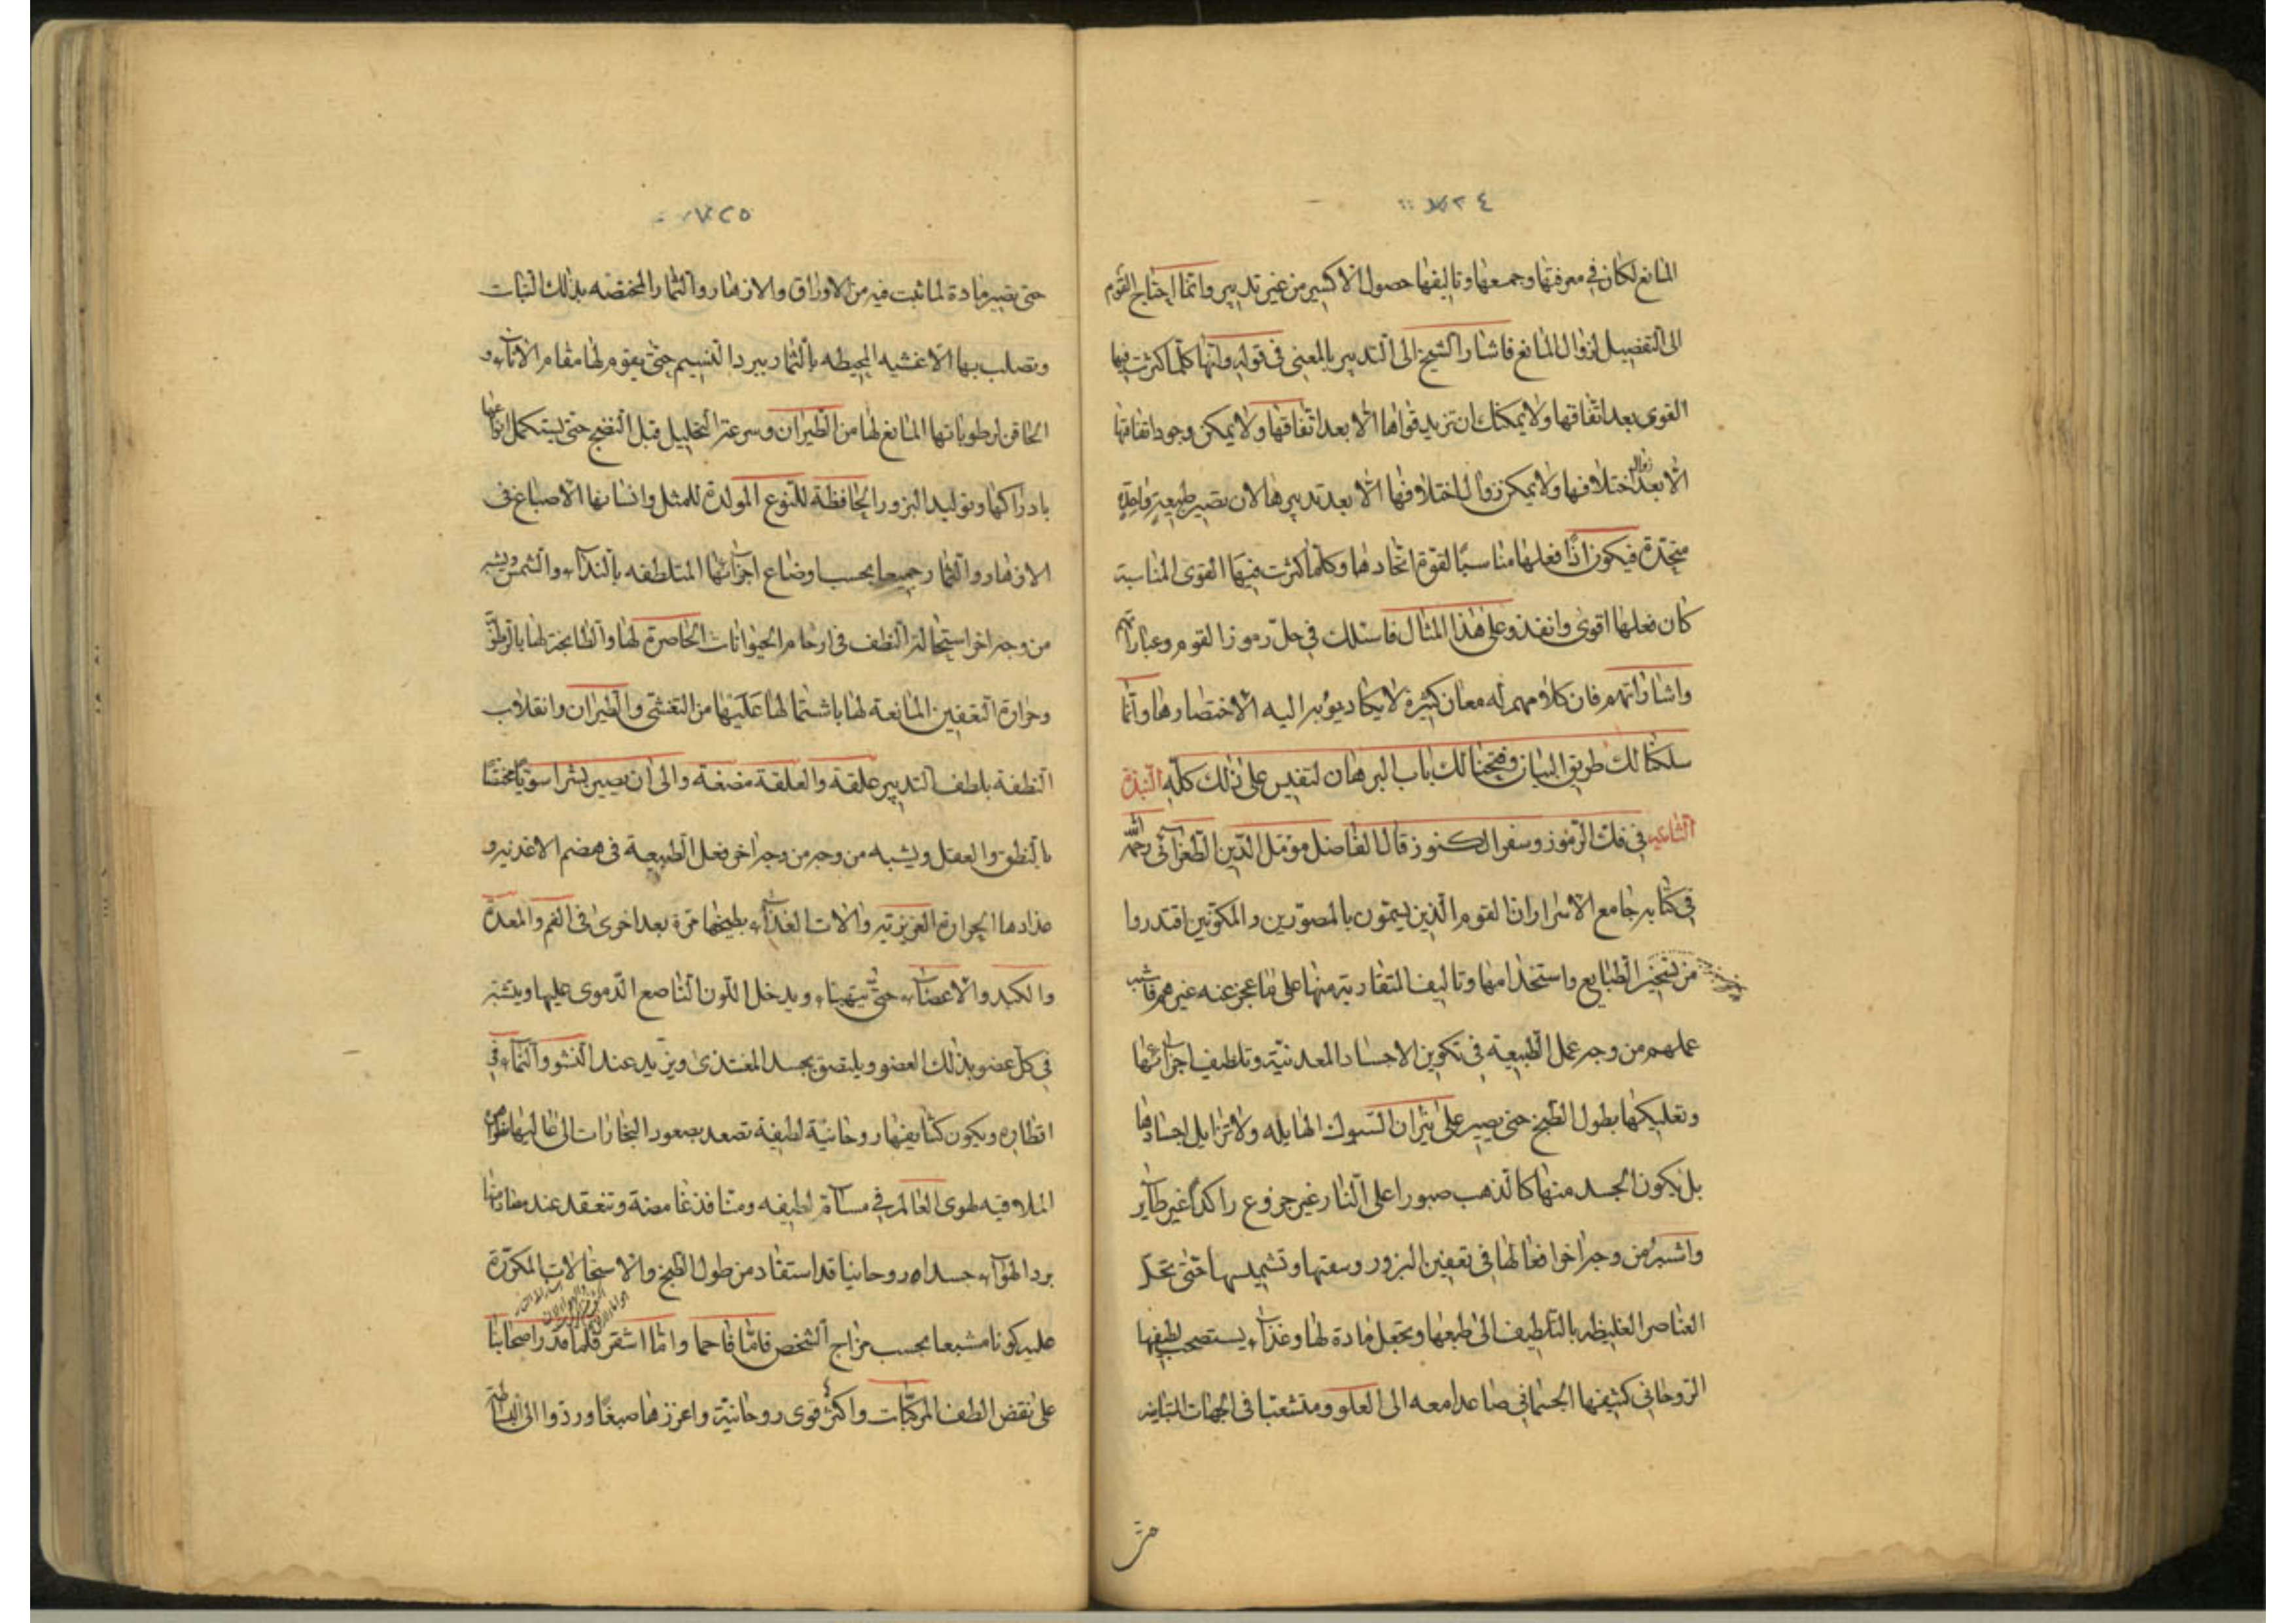 ٧٢٤
المانع لكان في معرفتها وجمعها وتاليفها حصول الاكسير من غير تدبير وانما احتاج القوم
الى التفصيل لزوال المانع فاشار الشيخ الى التدبير بالمعنى في قوله وانها كلما كثرت فيها
القوى بعد اتفاقها ولا يمكنك ان تزيد قواها الا بعد اتفاقها ولا يمكن وجود اتفاقها
الا بعد زوال اختلافها ولا يمكن زوال اختلافها الا بعد تدبيرها لان تصير طبيعة واحدة
متحدة فيكون اذا فعلها مناسبا لقوة اتحادها وكلما كثرت فيها القوى المناسبة
كان فعلها اقوى وانفذ وعلى هذا المثال فاسلك في حل رموز القوم وعباراتهم
واشاراتهم فان كلامهم له معان كثيرة لا يكاد يؤثر اليه الاختصارها وانما
سلكنا لك طريق البيان وفتحنا لك باب البرهان لتقيس على ذلك كله النبذة
في فك الرموز وسفر الكنوز قال الفاضل مؤيد الدين الطغرائي رحمه الله
في كتابه جامع الاسرار ان القوم الذين يسمون بالمصورين والمكونين اقتدروا
من تسخير الطبايع واستخدامها وتاليف المتعادية منها على ما عجز عنه غيرهم فاشبه
عملهم من وجه عمل الطبيعة في تكوين الاجساد المعدنية وتلطيف اجزائها
وتعليكها بطول الطبخ حتى يصير على نيران السبوك الهايله ولا تزايل اجسادها
بل يكون الجسد منها كالذهب صبورا على النار غير جزوع راكدا غير طاير
واشبه من وجه اخر افعالها في تعفين البزور وسقيها وتشميسها حتى تحلل
العناصر الغليظه بالتلطيف الى طبعها وتجعل مادة لها وغذاء يستصحب لطيفها
الروحاني كثيفها الجسماني صاعدا معه الى العلو ومتشعبا في الجهات المتباينه
حتى
٧٢٥
حتى يصير مادة لما ثبت فيه من الاوراق والازهار والثمار المختصه بذلك النبات
وتصلب بها الاغشيه المحيطه بالثمار ببرد النسيم حتى يقوم لها مقام الاناء و
الحاقن لرطوباتها المانع لها من الطيران وسرعة التحليل قبل النضج حتى يستكمل
بادراكها وتوليد البزور الحافظة للنوع المولدة للمثل وانسابها الاصباغ في
الازهار والثمار جميعا بحسب اوضاع اجزائها المتلطفه بالنداء والشمس ويشبه
من وجه اخر استحالة النطف في ارحام الحيوانات الحاصرة لها والطابخة لها بالرطوبة
وحرارة التعفين المانعة لها باشتمالها عليها من التفشي والطيران وانقلاب
النطفة بلطف التدبير علقة والعلقة مضغة والى ان يصير بشرا سويا مختصا
بالنطق والعقل ويشبه من وجه من وجه اخر فعل الطبيعة في هضم الاغذية و
مدادها الحرارة الغريزية والات الغذاء بطبخها مرة بعد اخرى في الفم والمعدة
والكبد والاعضاء حتى يتهيأ ويدخل اللون الناصع الدموي عليها ويتشبه
في كل عضو بذلك العضو ويلتصق بجسد المغتذى ويزيد عند النشو والنماء في
اقطاره ويكون كثايفها روحانية لطيفة تصعد صعود البخارات الى
الملاقيه لهوى العالم في مسام لطيفه ومنافذ غامضة وتنعقد عند
برد الهواء جسدا روحانيا قد استفاد من طول الطبخ والاستحالات المكررة
عليه لونا مشبعا بحسب مزاج الشخص فاما فاحما واما اشقر فلما قدر اصحابنا
على نقض الطف المركبات واكثر قوى روحانية واعزرها صبغا وردوا الى